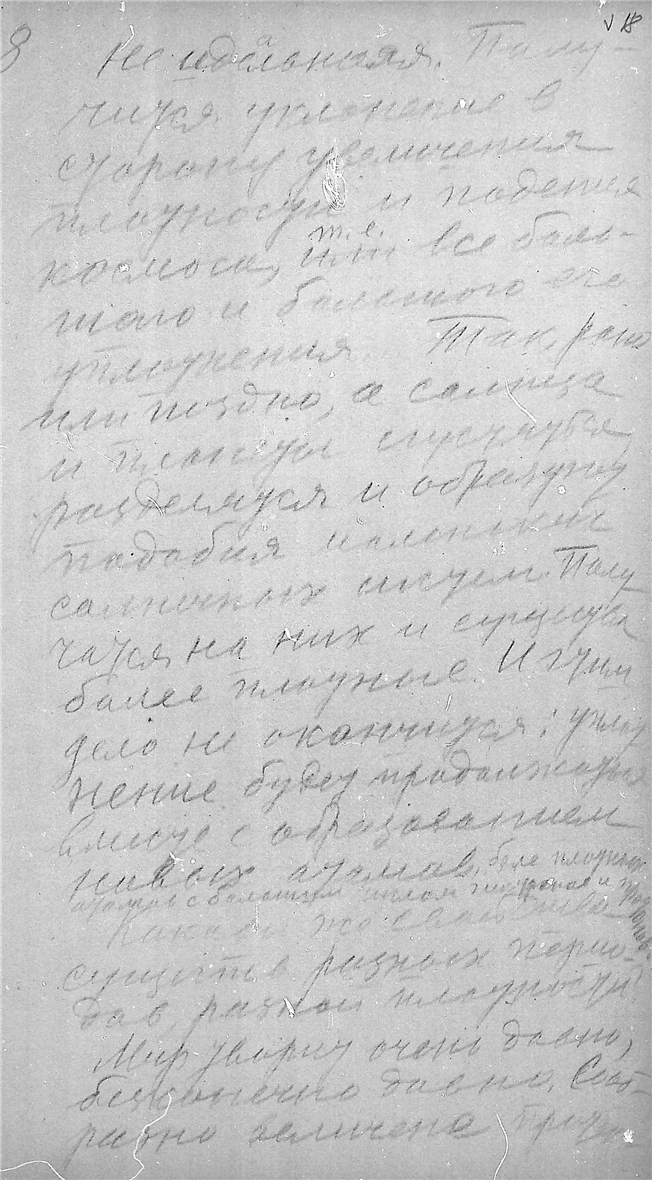 8 18
не идеальная. Полу-
чится уклонение в
сторону увеличения
плотности и падения
космоса, т.е. все боль-
шого и большого его
уплотнения. Так, рано
или поздно, а солнца
и планеты сгустятся,
разделятся и образуют
подобия маленьких
солнечных систем. Полу
чатся на них и существа
более плотные. И этим
дело не окончится: упло
нение будет продолжаться
вместе с образованием
новых атомов, более плотных
атомов с большим числом электронов и протонов.
Каковы же свойства
существ разных перио-
дов, разной плотности
Мир творит очень давно,
бесконечно давно. Сооб-
разно величена